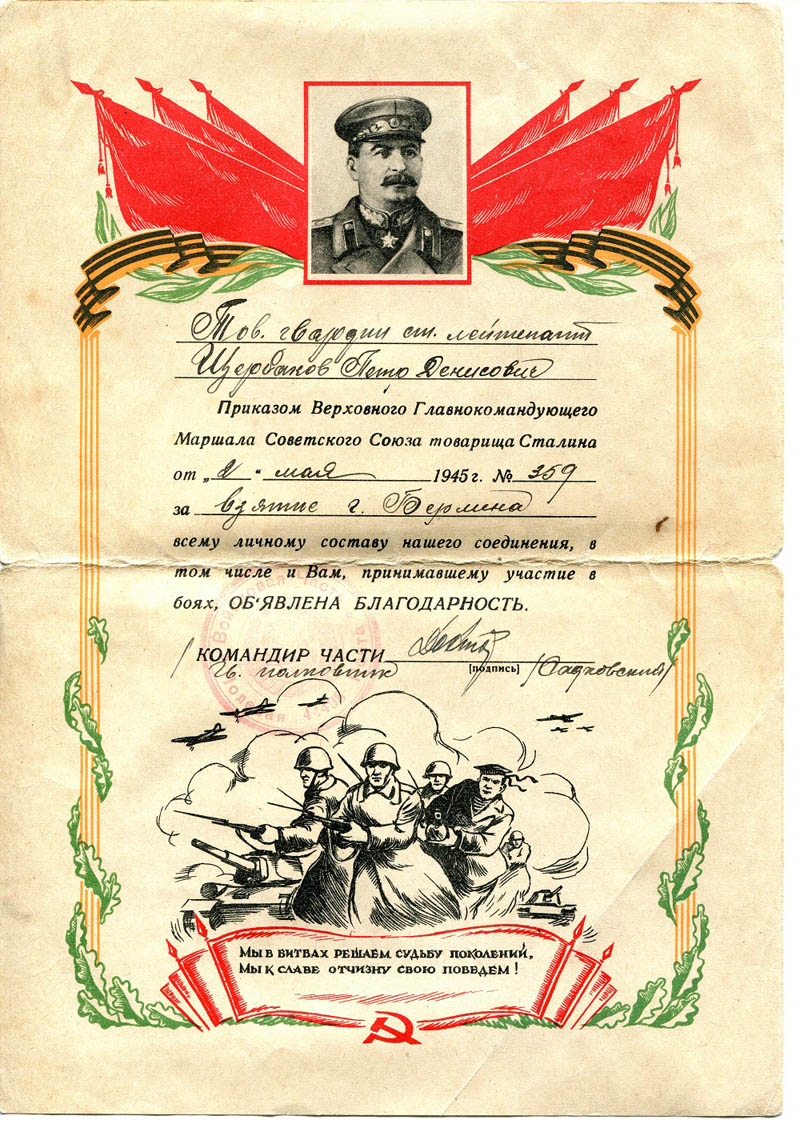 Тов. гвардии ст. лейтенант
Щербаков Петр Денисович
Приказом Верховного Главнокомандующего
Маршала Советского Союза товарища Сталина
от „2“ мая 1945 г. № 359
за взятие г. Берлина
всему личному составу нашего соединения, в
том числе и Вам, принимавшему участие в
боях, ОБ'ЯВЛЕНА БЛАГОДАРНОСТЬ.
КОМАНДИР ЧАСТИ
гв. полковник [подпись] /Садковский/
МЫ В БИТВАХ РЕШАЕМ СУДЬБУ ПОКОЛЕНИЙ,
МЫ К СЛАВЕ ОТЧИЗНУ СВОЮ ПОВЕДЕМ!